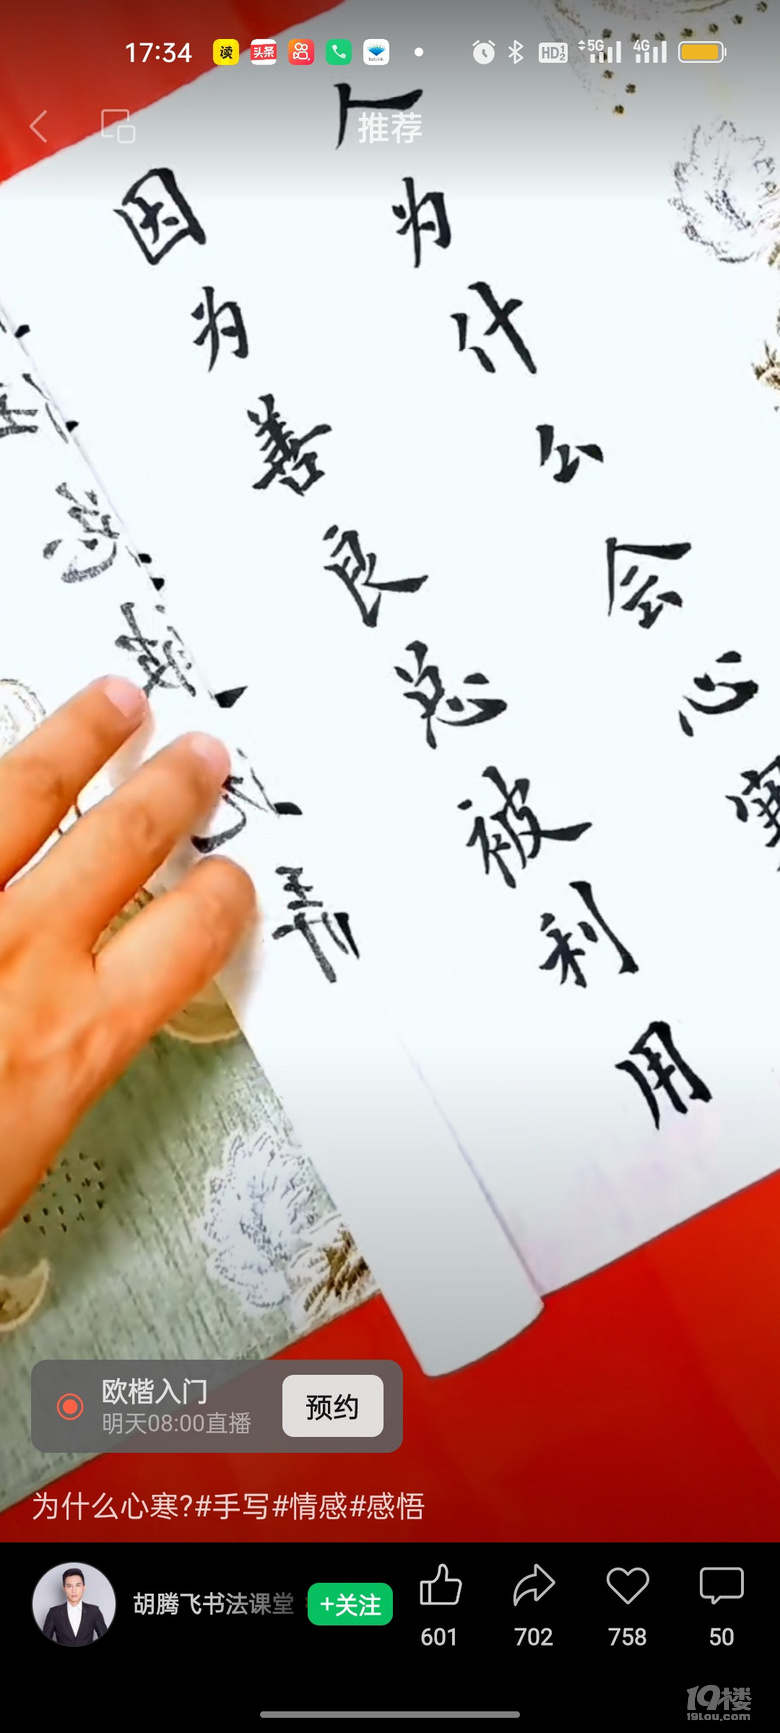 17:34
读
头条
HD1 2
5G
4G
推荐
人为什么会心寒
因为善良总被利用
欧楷入门
明天08:00直播
预约
为什么心寒?#手写#情感#感悟
胡腾飞书法课堂
+关注
601
702
758
50
19楼
19lou.com